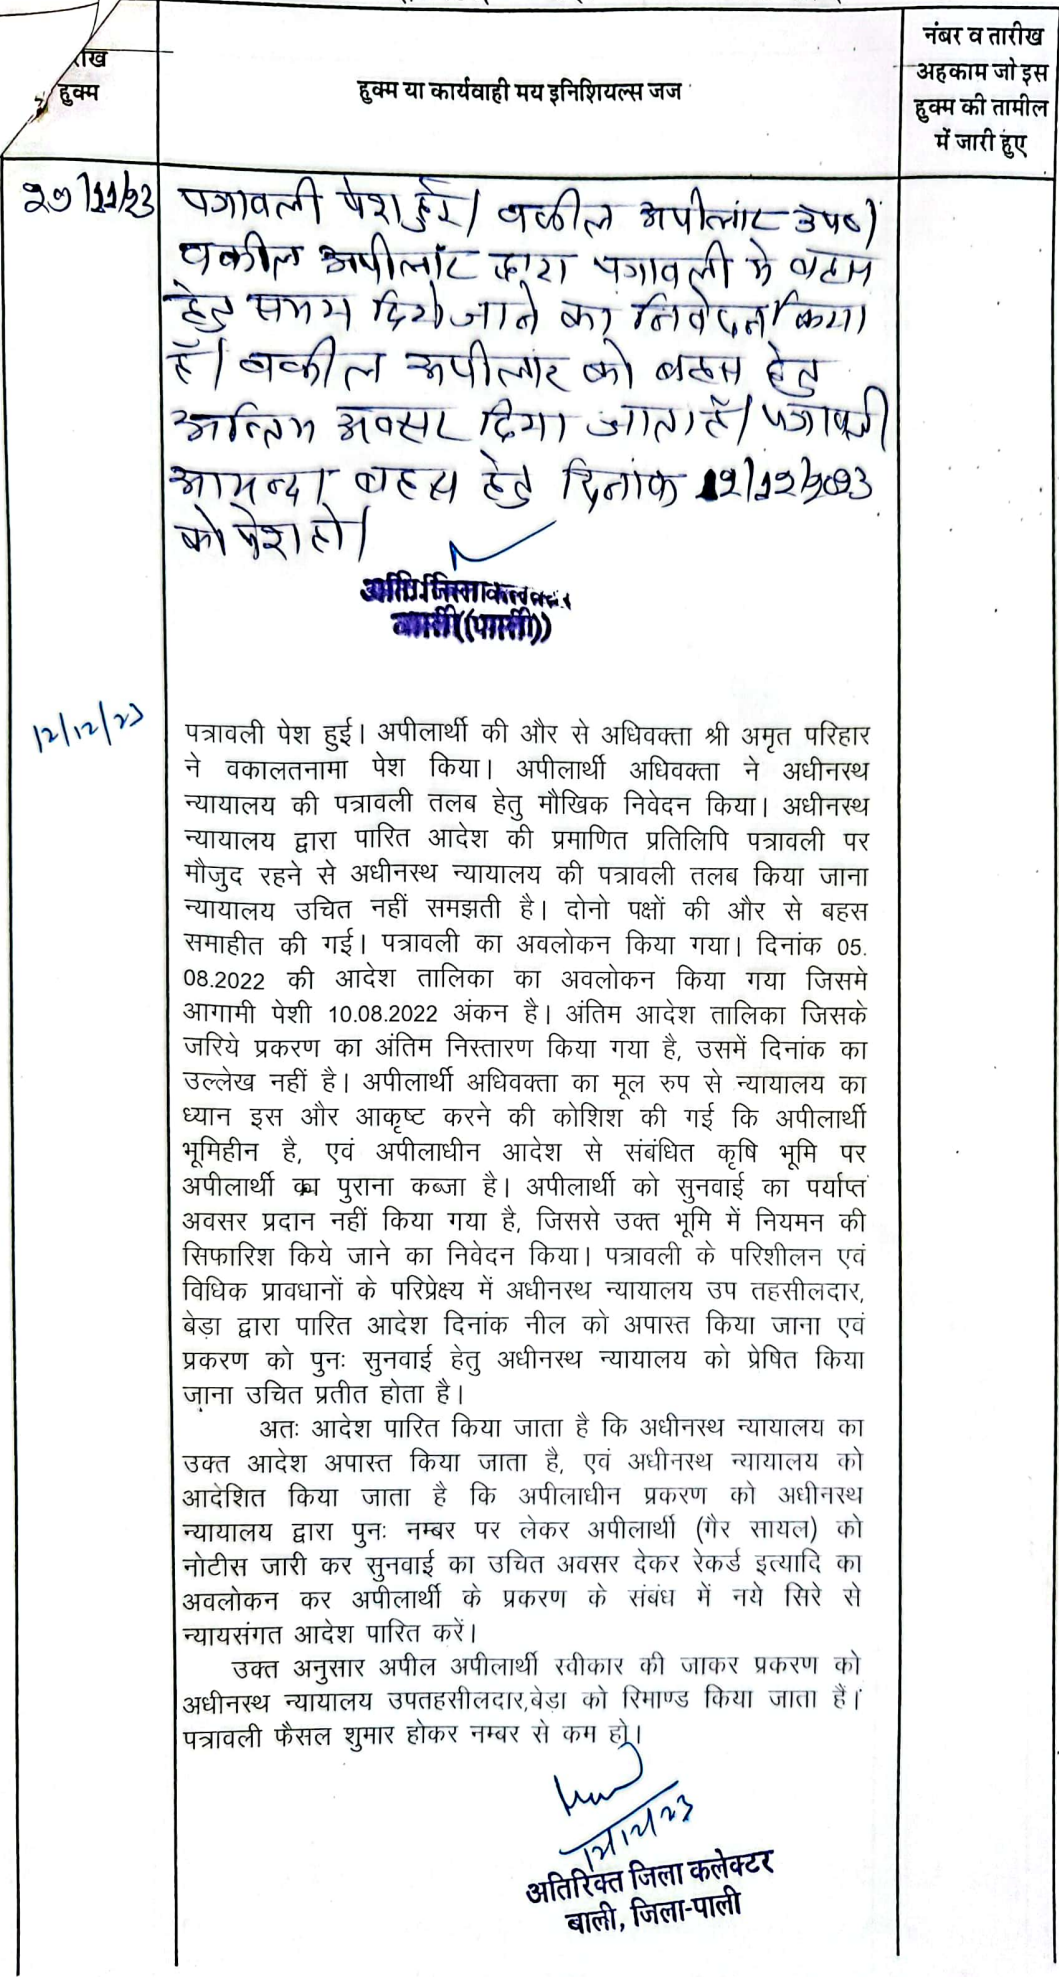 ीख
हुक्म
हुक्म या कार्यवाही मय इनिशियल्स जज
नंबर व तारीख
अहकाम जो इस
हुक्म की तामील
में जारी हुए
पत्रावली पेश हुई। वकील अपीलांट उप०।
वकील अपीलांट द्वारा पत्रावली मे बहस
हेतु समय दिये जाने का निवेदन किया
है। वकील अपीलांट को बहस हेतु
अन्तिम अवसर दिया जाता है। पत्रावली
आयन्दा बहस हेतु दिनांक 12/12/2023
को पेश हो।
अति. जिला कलक्टर
बाली (पाली)
12/12/23
पत्रावली पेश हुई। अपीलार्थी की और से अधिवक्ता श्री अमृत परिहार
ने वकालतनामा पेश किया। अपीलार्थी अधिवक्ता ने अधीनस्थ
न्यायालय की पत्रावली तलब हेतु मौखिक निवेदन किया। अधीनस्थ
न्यायालय द्वारा पारित आदेश की प्रमाणित प्रतिलिपि पत्रावली पर
मौजुद रहने से अधीनस्थ न्यायालय की पत्रावली तलब किया जाना
न्यायालय उचित नहीं समझती है। दोनो पक्षों की और से बहस
समाहीत की गई। पत्रावली का अवलोकन किया गया। दिनांक 05.
08.2022 की आदेश तालिका का अवलोकन किया गया जिसमे
आगामी पेशी 10.08.2022 अंकन है। अंतिम आदेश तालिका जिसके
जरिये प्रकरण का अंतिम निस्तारण किया गया है, उसमें दिनांक का
उल्लेख नहीं है। अपीलार्थी अधिवक्ता का मूल रुप से न्यायालय का
ध्यान इस और आकृष्ट करने की कोशिश की गई कि अपीलार्थी
भूमिहीन है, एवं अपीलाधीन आदेश से संबंधित कृषि भूमि पर
अपीलार्थी का पुराना कब्जा है। अपीलार्थी को सुनवाई का पर्याप्त
अवसर प्रदान नहीं किया गया है, जिससे उक्त भूमि में नियमन की
सिफारिश किये जाने का निवेदन किया। पत्रावली के परिशीलन एवं
विधिक प्रावधानों के परिप्रेक्ष्य में अधीनस्थ न्यायालय उप तहसीलदार,
बेड़ा द्वारा पारित आदेश दिनांक नील को अपास्त किया जाना एवं
प्रकरण को पुनः सुनवाई हेतु अधीनस्थ न्यायालय को प्रेषित किया
जाना उचित प्रतीत होता है।
अतः आदेश पारित किया जाता है कि अधीनस्थ न्यायालय का
उक्त आदेश अपास्त किया जाता है, एवं अधीनस्थ न्यायालय को
आदेशित किया जाता है कि अपीलाधीन प्रकरण को अधीनस्थ
न्यायालय द्वारा पुनः नम्बर पर लेकर अपीलार्थी (गैर सायल) को
नोटीस जारी कर सुनवाई का उचित अवसर देकर रेकर्ड इत्यादि का
अवलोकन कर अपीलार्थी के प्रकरण के संबंध में नये सिरे से
न्यायसंगत आदेश पारित करें।
उक्त अनुसार अपील अपीलार्थी स्वीकार की जाकर प्रकरण को
अधीनस्थ न्यायालय उपतहसीलदार,बेड़ा को रिमाण्ड किया जाता हैं।
पत्रावली फैसल शुमार होकर नम्बर से कम हो।
अतिरिक्त जिला कलेक्टर
बाली, जिला-पाली